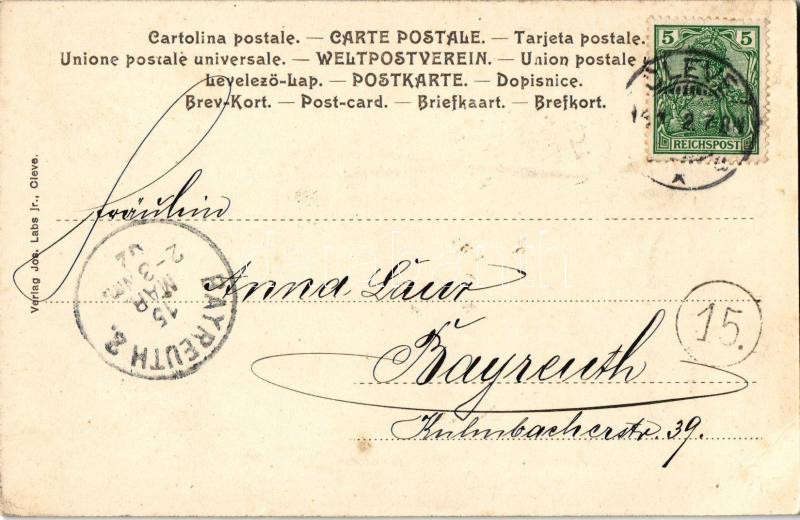 Cartolina postale. — CARTE POSTALE. — Tarjeta postale.
Unione postale universale. — WELTPOSTVEREIN. — Union postale
Levelezö-Lap. — POSTKARTE. — Dopisnice.
Brev-Kort. — Post-card. — Briefkaart. — Brefkort.
5 5
REICHSPOST
CLEVE
Verlag Jos. Labs jr., Cleve.
Fräulein
BAYREUTH 2.
15
MAR
2-3 NM.
02
Anna Laur
15.
Bayreuth
Kulmbacherstr. 39.